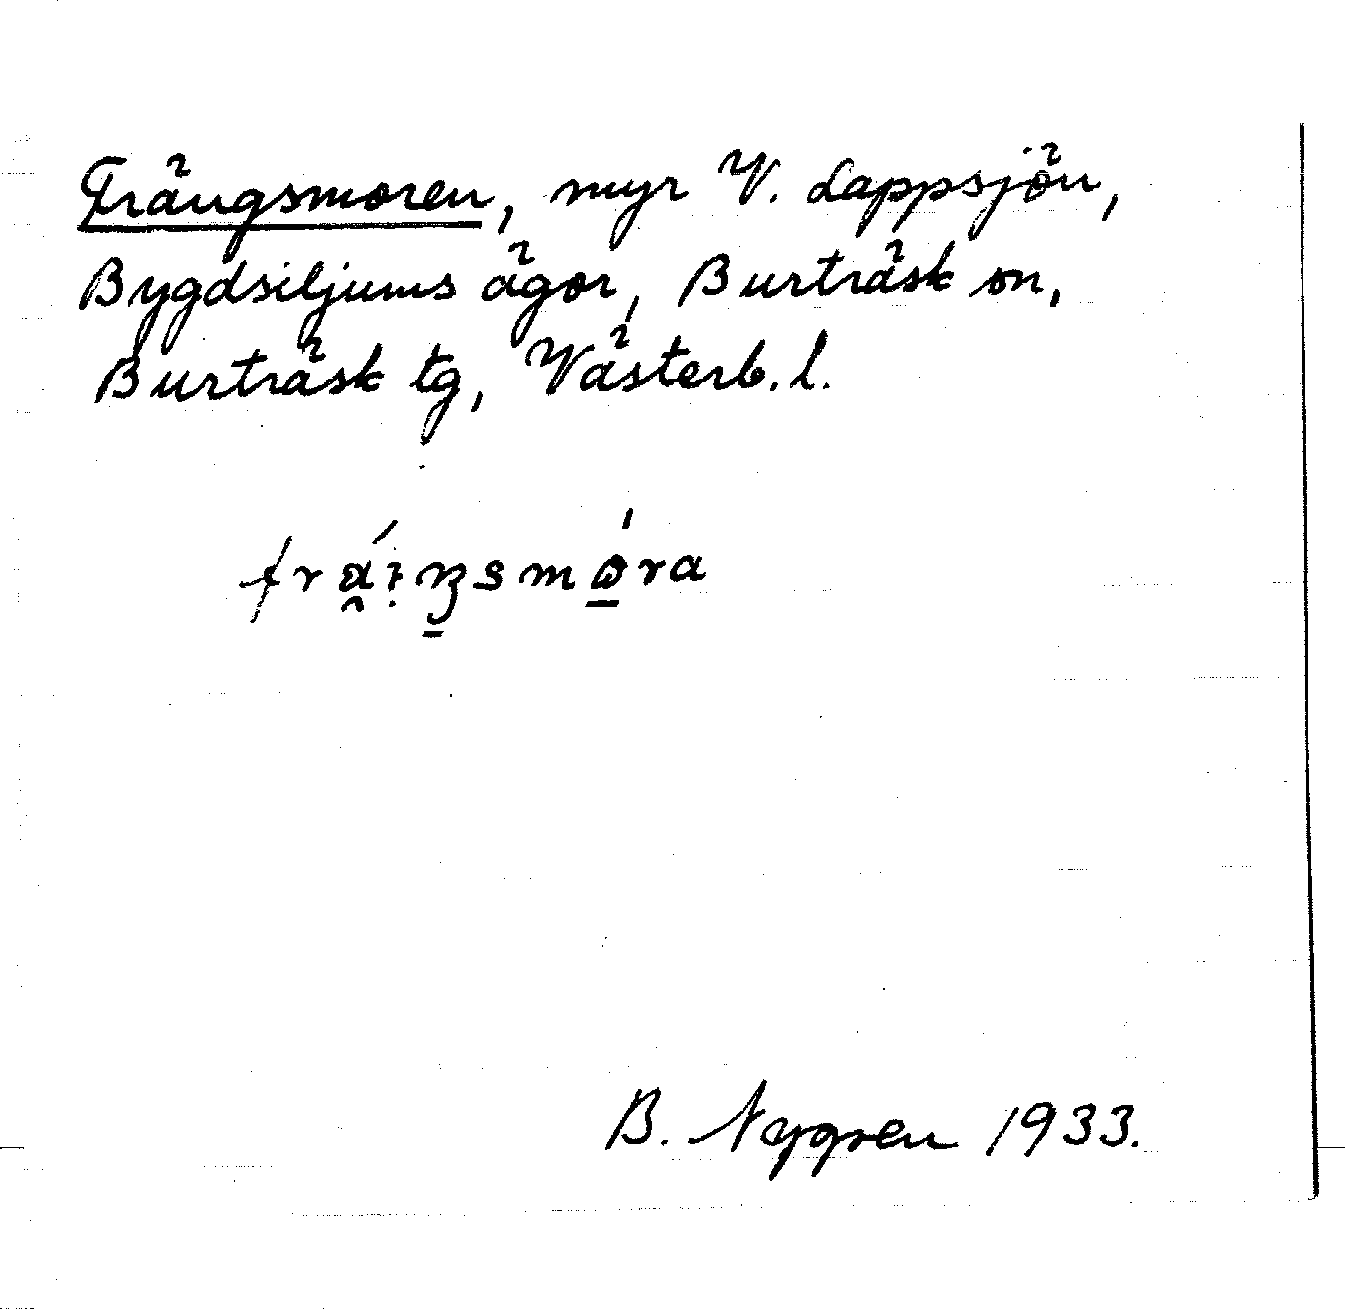 Frängsmoren, myr V. Lappsjön,
Bygdsiljums ägor, Burträsk sn,
Burträsk tg, Västerb. l.
B. Nygren 1933.